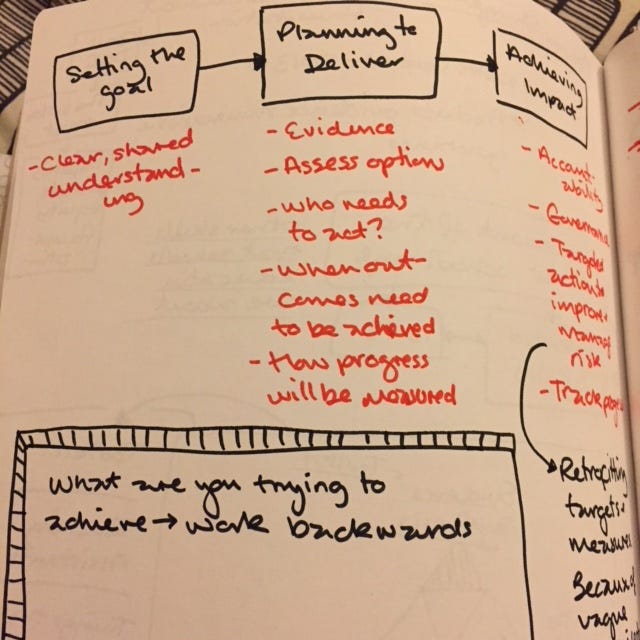 Setting the
goal
Planning to
Deliver
Achieving
Impact
- Clear, shared
understand-
ing
- Evidence
- Assess option
- Who needs
to act?
- When out-
comes need
to be achieved
- How progress
will be measured
- Account-
ability
- Governance
- Targeted
action to
improve
manage
risk
- Track progress
Retrofitting
targets +
measures
Because of
vague
What are you trying to
achieve → work backwards